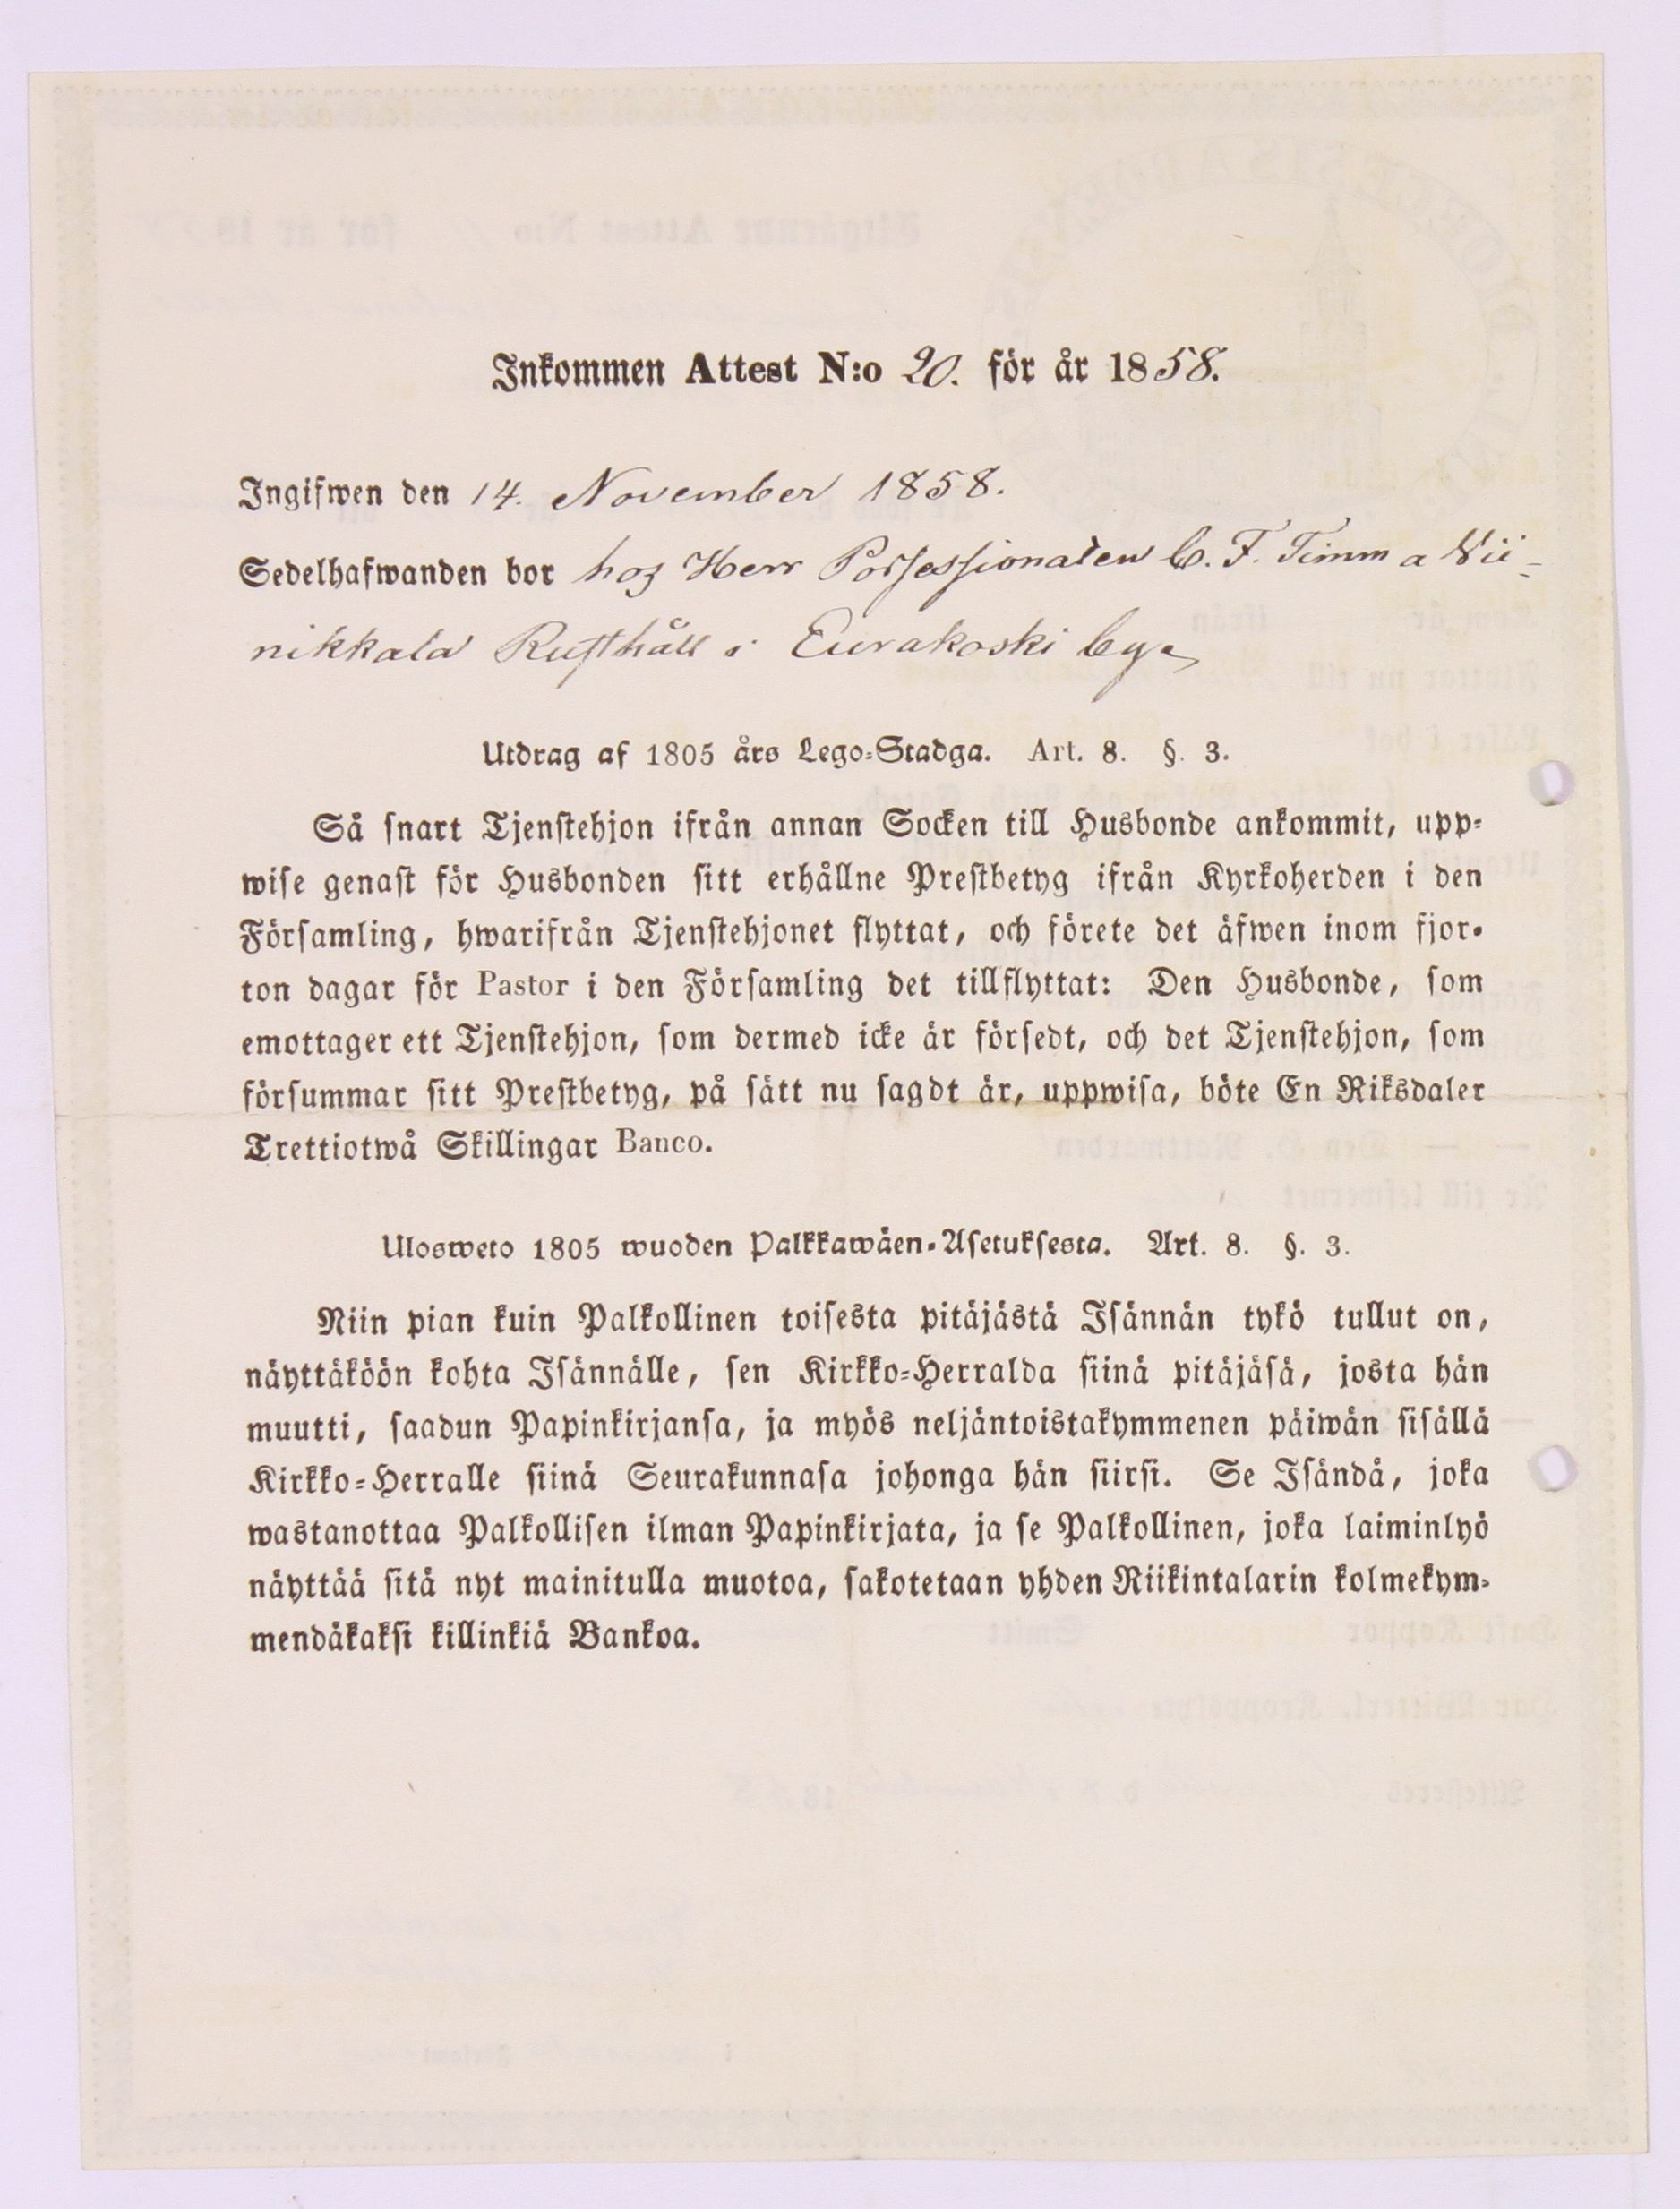 Inkommen Attest N:o 20. för år 1858.
Ingifwen den 14. November 1858.
Sedelhafwanden bor hos Herr Possessionaten C. F. Timm a Vii-
nikkala Rusthåll i Eurakoski by
Utdrag af 1805 års Lego-Stadga. Art. 8. §. 3.
Så snart Tjenstehjon ifrån annan Socken till Husbonde ankommit, upp-
wise genast för Husbonden sitt erhållne Prestbetyg ifrån Kyrkoherden i den
Församling, hwarifrån Tjenstehjonet flyttat, och förete det äfwen inom fjor-
ton dagar för Pastor i den Församling det tillflyttat: Den Husbonde, som
emottager ett Tjenstehjon, som dermed icke är försedt, och det Tjenstehjon, som
försummar sitt Prestbetyg, på sätt nu sagdt är, uppwisa, böte En Riksdaler
Trettiotwå Skillingar Banco.
Ulosweto 1805 wuoden Palkkawäen-Asetuksesta. Art. 8. §. 3.
Niin pian kuin Palkollinen toisesta pitäjästä Isännän tykö tullut on,
näyttäköön kohta Isännälle, sen Kirkko-Herralda siinä pitäjäsä, josta hän
muutti, saadun Papinkirjansa, ja myös neljäntoistakymmenen päiwän sisällä
Kirkko-Herralle siinä Seurakunnasa johonga hän siirsi. Se Isändä, joka
wastanottaa Palkollisen ilman Papinkirjata, ja se Palkollinen, joka laiminlyö
näyttää sitä nyt mainitulla muotoa, sakotetaan yhden Riikintalarin kolmekym-
mendäkaksi killinkiä Bankoa.